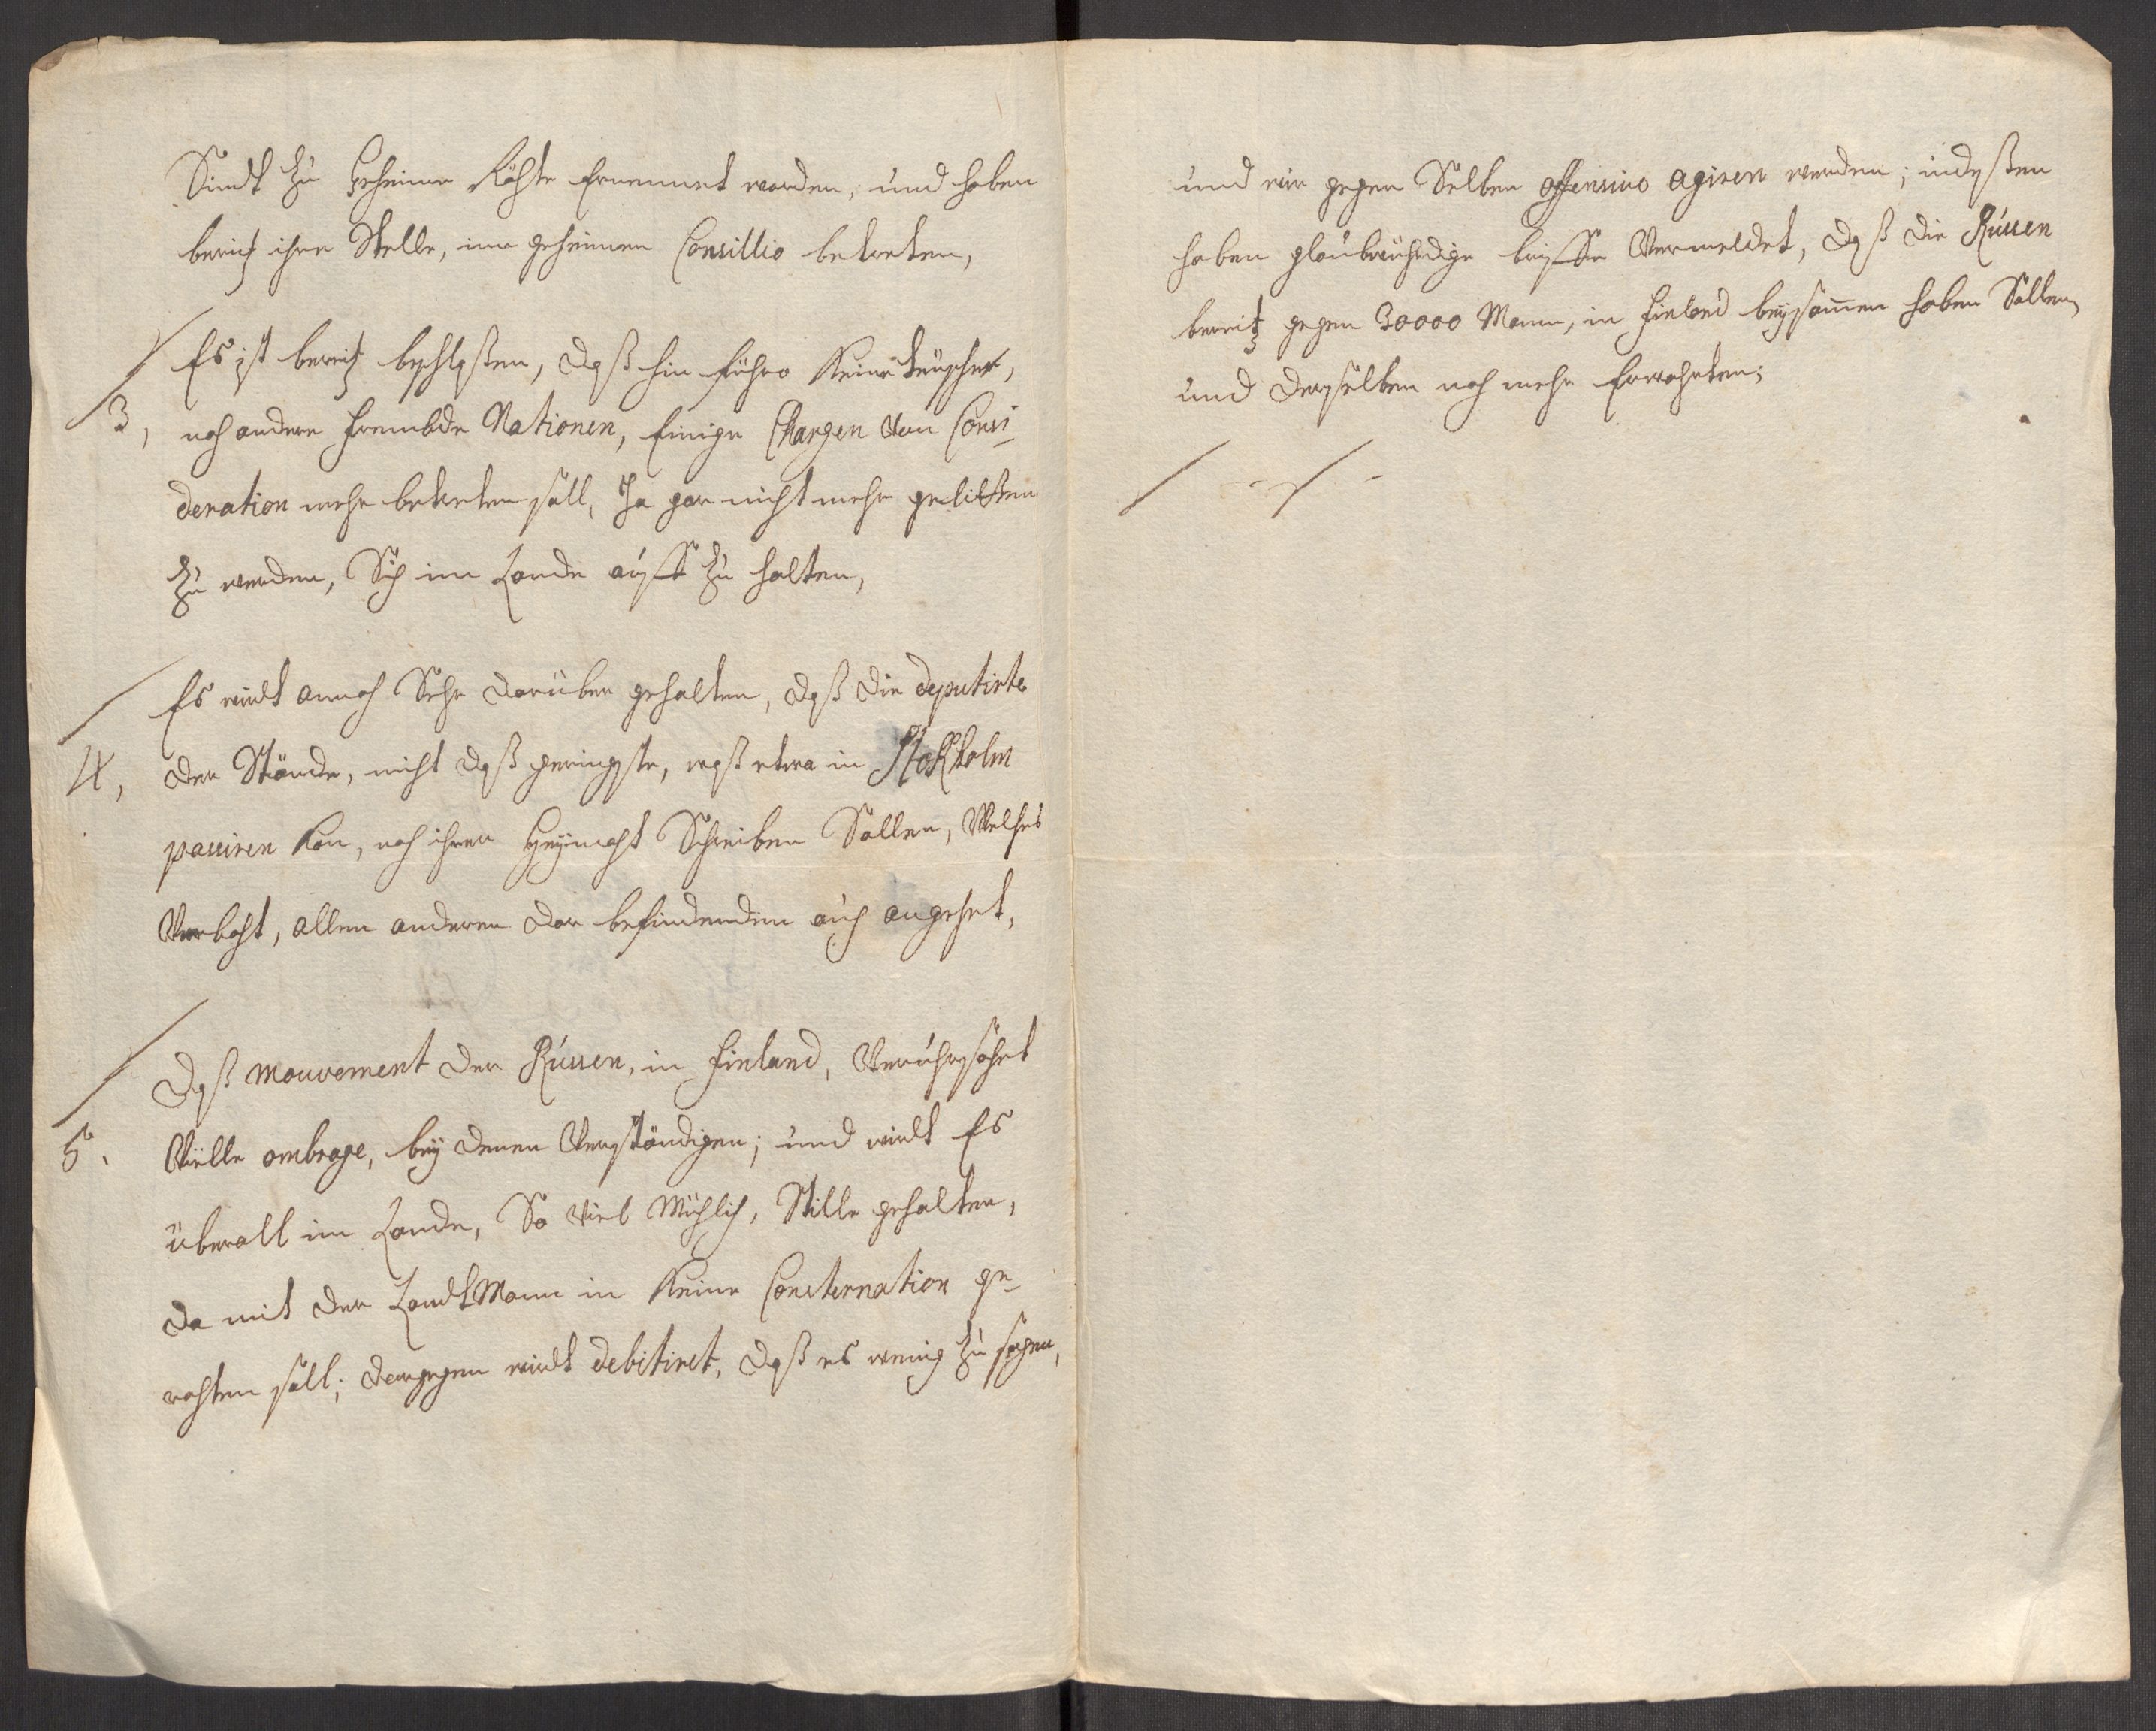 Sindt zu Geheime Rähte ernennet worden, und haben
bereitz ihre Stelle, im geheimen Consillio betreten,
Es ist bereitz beschloßen, daß hin führo Keine teuscher,
3, noch andere frembde Nationen, einige Chargen von Consi-
deration mehr betreten soll, Ja gar nicht mehr gelitten
zu werden, Sich im Lande auff zu halten,
Es wirdt annoch Sehr darüber gehalten, daß die deputirte
4, der Stände, nicht daß geringste, waß etwa in Stokholm
passiren kan, nach ihrer Heymaht Schreiben Sollen, Welches
Verboht, allen anderen dar befindenden auch angehet,
Daß mouvement der Russen, in Finland, Veruhrsahet
5. Vielle ombrage, bey denen Verständigen; und wirdt Es
überall im Lande, So viel Müchlich, Stille gehalten,
da mit der LandtMann in Keine Consternation ge-
rahten soll; dargegen wirdt debitiret, daß es wenig zu sagen,
und wir gegen Selben offensivo agiren werden; indeßen
haben glaubwürdige brieffe Vermeldet, daß die Russen
bereitz gegen 30000 Mann, in Finland beysam̄en haben Sollen,
und derselben noch mehr Erwahrten;